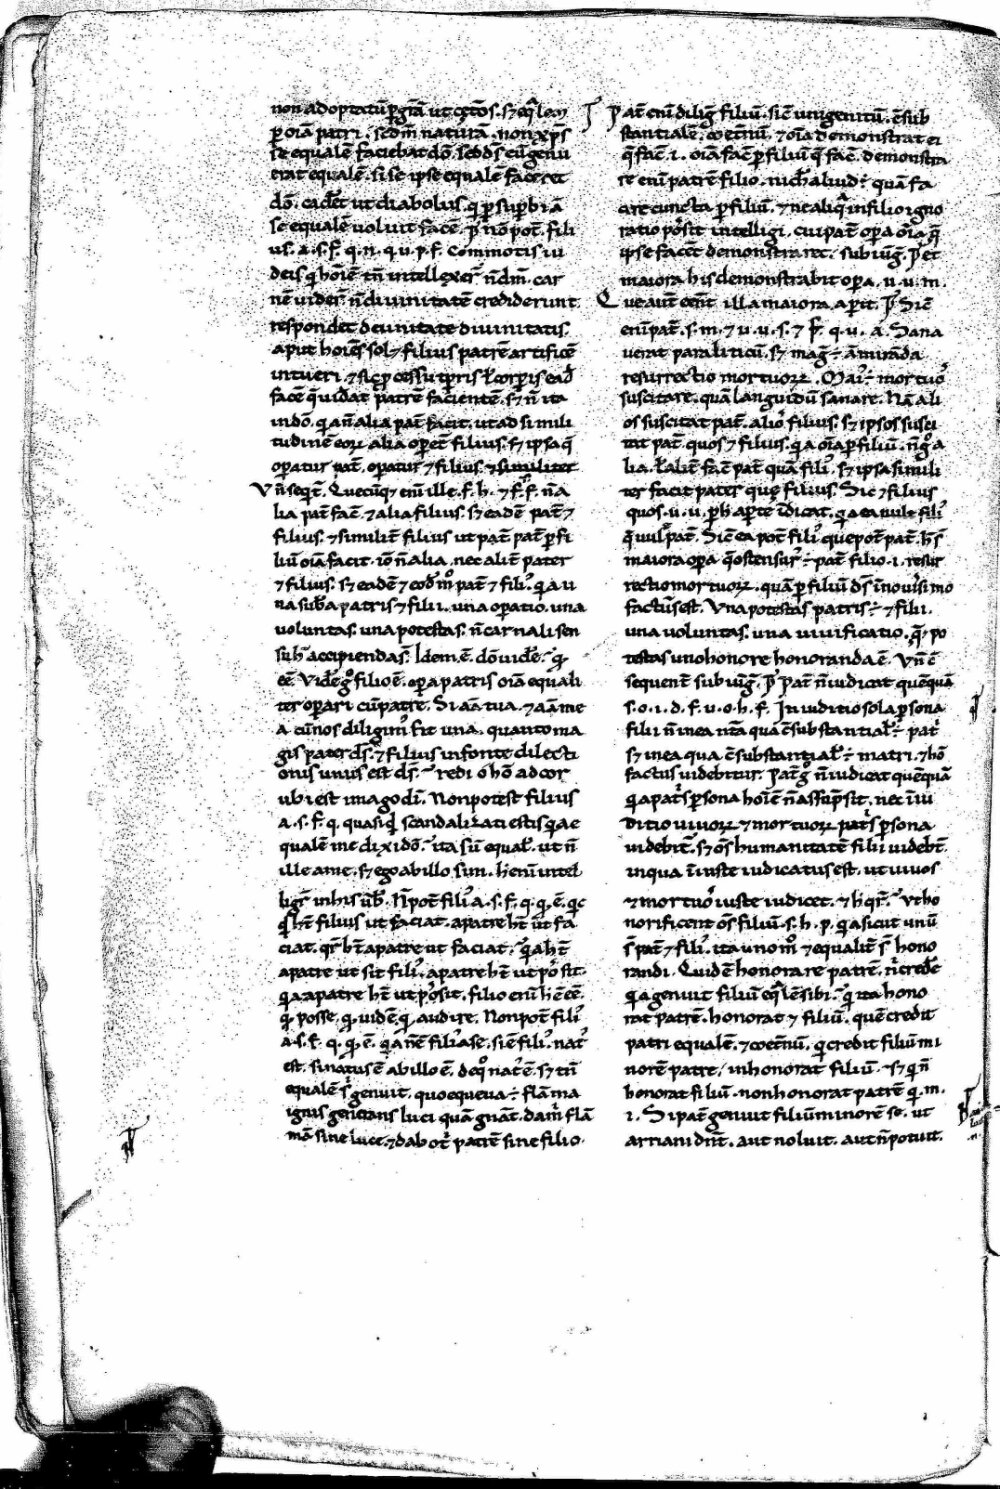 non adoptatũ ꝑ gr̃am ut cet̃os. sꝫ eq̃lem
ꝑ oĩa patri. sed m̃ naturã. non xp̃s
se equalẽ faciebat dõ. sed d̃s eũ genu
erat equalẽ. si se ipse equalẽ facecet
dõ. cadẽt ut diabolus. q̃ ꝑ suꝑbiã
se equalẽ uoluit facẽ. p̃ nõ pot̃. fili
us. a. s. f. q. n. q. u. p. f. Commotis iu
deis q̃ hoĩem tñ intellexer̃ ñ dm̃. car
nẽ uider̃ ñ diuinitatẽ crediderunt
respondet de unitate diuinitatis.
aput hoĩes sol⁊ filius patrẽ artificẽ
intueri. ⁊ sic ꝓcessu tꝑris ł corꝑis eadẽ
facẽ q̃ uidat patrẽ facientẽ. sꝫ ñ ita
in dõ. q̃a ñ alia pat̃ facit. ut ad simili
tudinẽ eoꝝ alia oꝑet̃ filius. sꝫ ipsa q̃
oꝑatur pat̃. oꝑatur ⁊ filius. ⁊ similiter
Vñ seqt̃. Quecũq; enĩ ille. f. h. ⁊ f. f. ñ a
lia pat̃ facẽ. ⁊ alia filius. sꝫ eadẽ pat̃ ⁊
filius. ⁊ similit̃ filius ut pat̃. pat̃ ꝑ fi
liũ oĩa facit. iõ ñ alia. nec alit̃ pater
⁊ filius. sꝫ eadẽ ⁊ eod̃ mõ pat̃ ⁊ fili᾽. q̃a u
na sub̃a patris ⁊ filii. una oꝑatio. una
uoluntas. una potestas. ñ carnali sen
su h̃ accipiendas. Idem. ẽ. dõ uidẽ. q̃
ẽẽ. Vidẽ g̊ filio ẽ. oꝑa patris oĩa equali
ter oꝑari cũ patre. Si añ tua. ⁊ añ me
a cũ nos diligim᾽ fit una. quanto ma
gis pater d̃s. ⁊ filius in fonte dilecti
onis unus est d̃s. redi o hõ ad cor
ubi est imago dĩ. Non potest filius
a. s. f. q. quasi q̃ scandalizati estis q̃a e
qualẽ me dixi dõ. ita sũ equal᾽. ut ñ
ille a me. sꝫ ego ab illo sim. h̃ enĩ intel
ligr̃ in his ũb̃. Ñ pot̃ fili᾽ a. s. f. q. q. ẽ. q̃c
q̃ h̃t filius ut faciat. a patre h̃t ut fa
ciat. qr̃ h̃t a patre ut faciat. q̃a h̃t
a patre ut sit fili᾽. a patre h̃t ut põ sit.
q̃a a patre h̃t ut põsit. filio enĩ h̃ ẽ ẽẽ.
q̃ posse. q̃. uidẽ. q̃. audire. Non pot̃ fili᾽
a. s. f. q. q̃. ẽ. q̃a ñ ẽ fili᾽ a se. si ẽ fili᾽. nat᾽
est. si natus ẽ ab illo ẽ. de q̊ nat᾽ ẽ. sꝫ tñ
equalẽ s᾽ genuit. quo equeua ÷ flãma
ignis generans luci quã gnãt. dam̃ flã
mã sine luce. ⁊ dabot̃ patrẽ sine filio.
Pat̃ enĩ dilig̃ filiũ. sic̃ unigenitũ. c̃sub
stantialẽ. coet̃nũ. ⁊ oĩa demonstrat ei
q̃ facẽ. i. oĩa facẽ ꝑ filiũ q̃ facẽ. demonstra
re enĩ patrẽ filio. nich̃ aliud ÷ quã fa
cere cuncta ꝑ filiũ. ⁊ ne aliq̃ in filio igno
ratio põsit intelligi. cui pat̃ oꝑa oĩa q̃
ipse facẽt demonstraret. subiũg̃. p̃ et
maiora his demonstrabit oꝑa. u. u. m.
Que aut̃ eent̃ illa maiora. aꝑit. p̃ Sic̃
enĩ pat̃. s. m. ⁊ u. u. s. ⁊ f. q. u. a. Sana
uerat paraliticũ. sꝫ mag̃ ÷ amirãda
resurrectio mortuoꝝ. Mai᾽ ÷ mortuo᾽
suscitare. quã languidũ sanare. Nã ali
os suscitat pat̃. alio᾽ filius. sꝫ ipsos susci
tat pat̃. quos ⁊ filius. q̃a oĩa ꝑ filiũ. ñ g̊ a
lia. ł alit̃ facẽ pat̃ quã fili᾽. sꝫ ipsa simili
ter facit pater que filius. Sic ⁊ filius
quos. u. u. ꝑ h̃ aꝑte ĩdicat. q̃a ea uule fili᾽
q̃ uult pat̃. Sic̃ ea pot̃ fili᾽ que pot̃ pat̃. h̃ s̃
maiora oꝑa q̃ ostensur᾽ ÷ pat̃ filio. i. resur
rectio mortuoꝝ. quã ꝑ filiũ d̃s ĩ nouissimo
factus est. Vna potestas patris ÷ ⁊ filii.
una uoluntas. una uiuificatio. q̃. po
testas uno honore honoranda ẽ. Vñ ẽ
sequent̃ subiũg̃. p̃ Pat̃ ñ iudicat quẽquã
s. o. i. d. f. u. o. h. f. In iuditio sola ꝑsona
filii ñ in ea nt̃a qua c̃substantial᾽ ÷ pat᾽
sꝫ in ea qua c̃substantial᾽ ÷ matri. ⁊ hõ
factus uidebitur. Pat̃ g̊ ñ iudicat quẽquã
q̃a pat᾽s ꝑsona hoĩem ñ assũpsit. nec ĩ iu
ditio uiuoꝝ ⁊ mortuoꝝ pat᾽s ꝑsona
uidebit̃. sꝫ os̃ humanitatẽ filii uidebt̃.
in qua ĩiuste iudicatus est. ut uiuos
⁊ mortuo᾽ iuste iudicet. ⁊ h̃ qr̃. Vt ho
norificent os̃ filiũ. s. h. p. q̃a sicut unũ
s̃ pat̃ ⁊ fili᾽. ita uno mõ ⁊ equalit̃ s̃ hono
randi. Quidẽ honorare patrẽ. ñ credẽ
q̃a genuit filiũ eq̃lẽ sibi. q̃ ita hono
rat patrẽ. honorat ⁊ filiũ. quẽ credit
patri equalẽ. ⁊ coet̃nũ. q̃ credit filiũ mi
norẽ patre, inhonorat filiũ. sꝫ q̃ ñ
honorat filiũ. non honorat patrẽ q̃. m.
i. Si pat̃ genuit filiũ minorẽ se. ut
arriani dñt. aut noluit. aut ñ potuit.